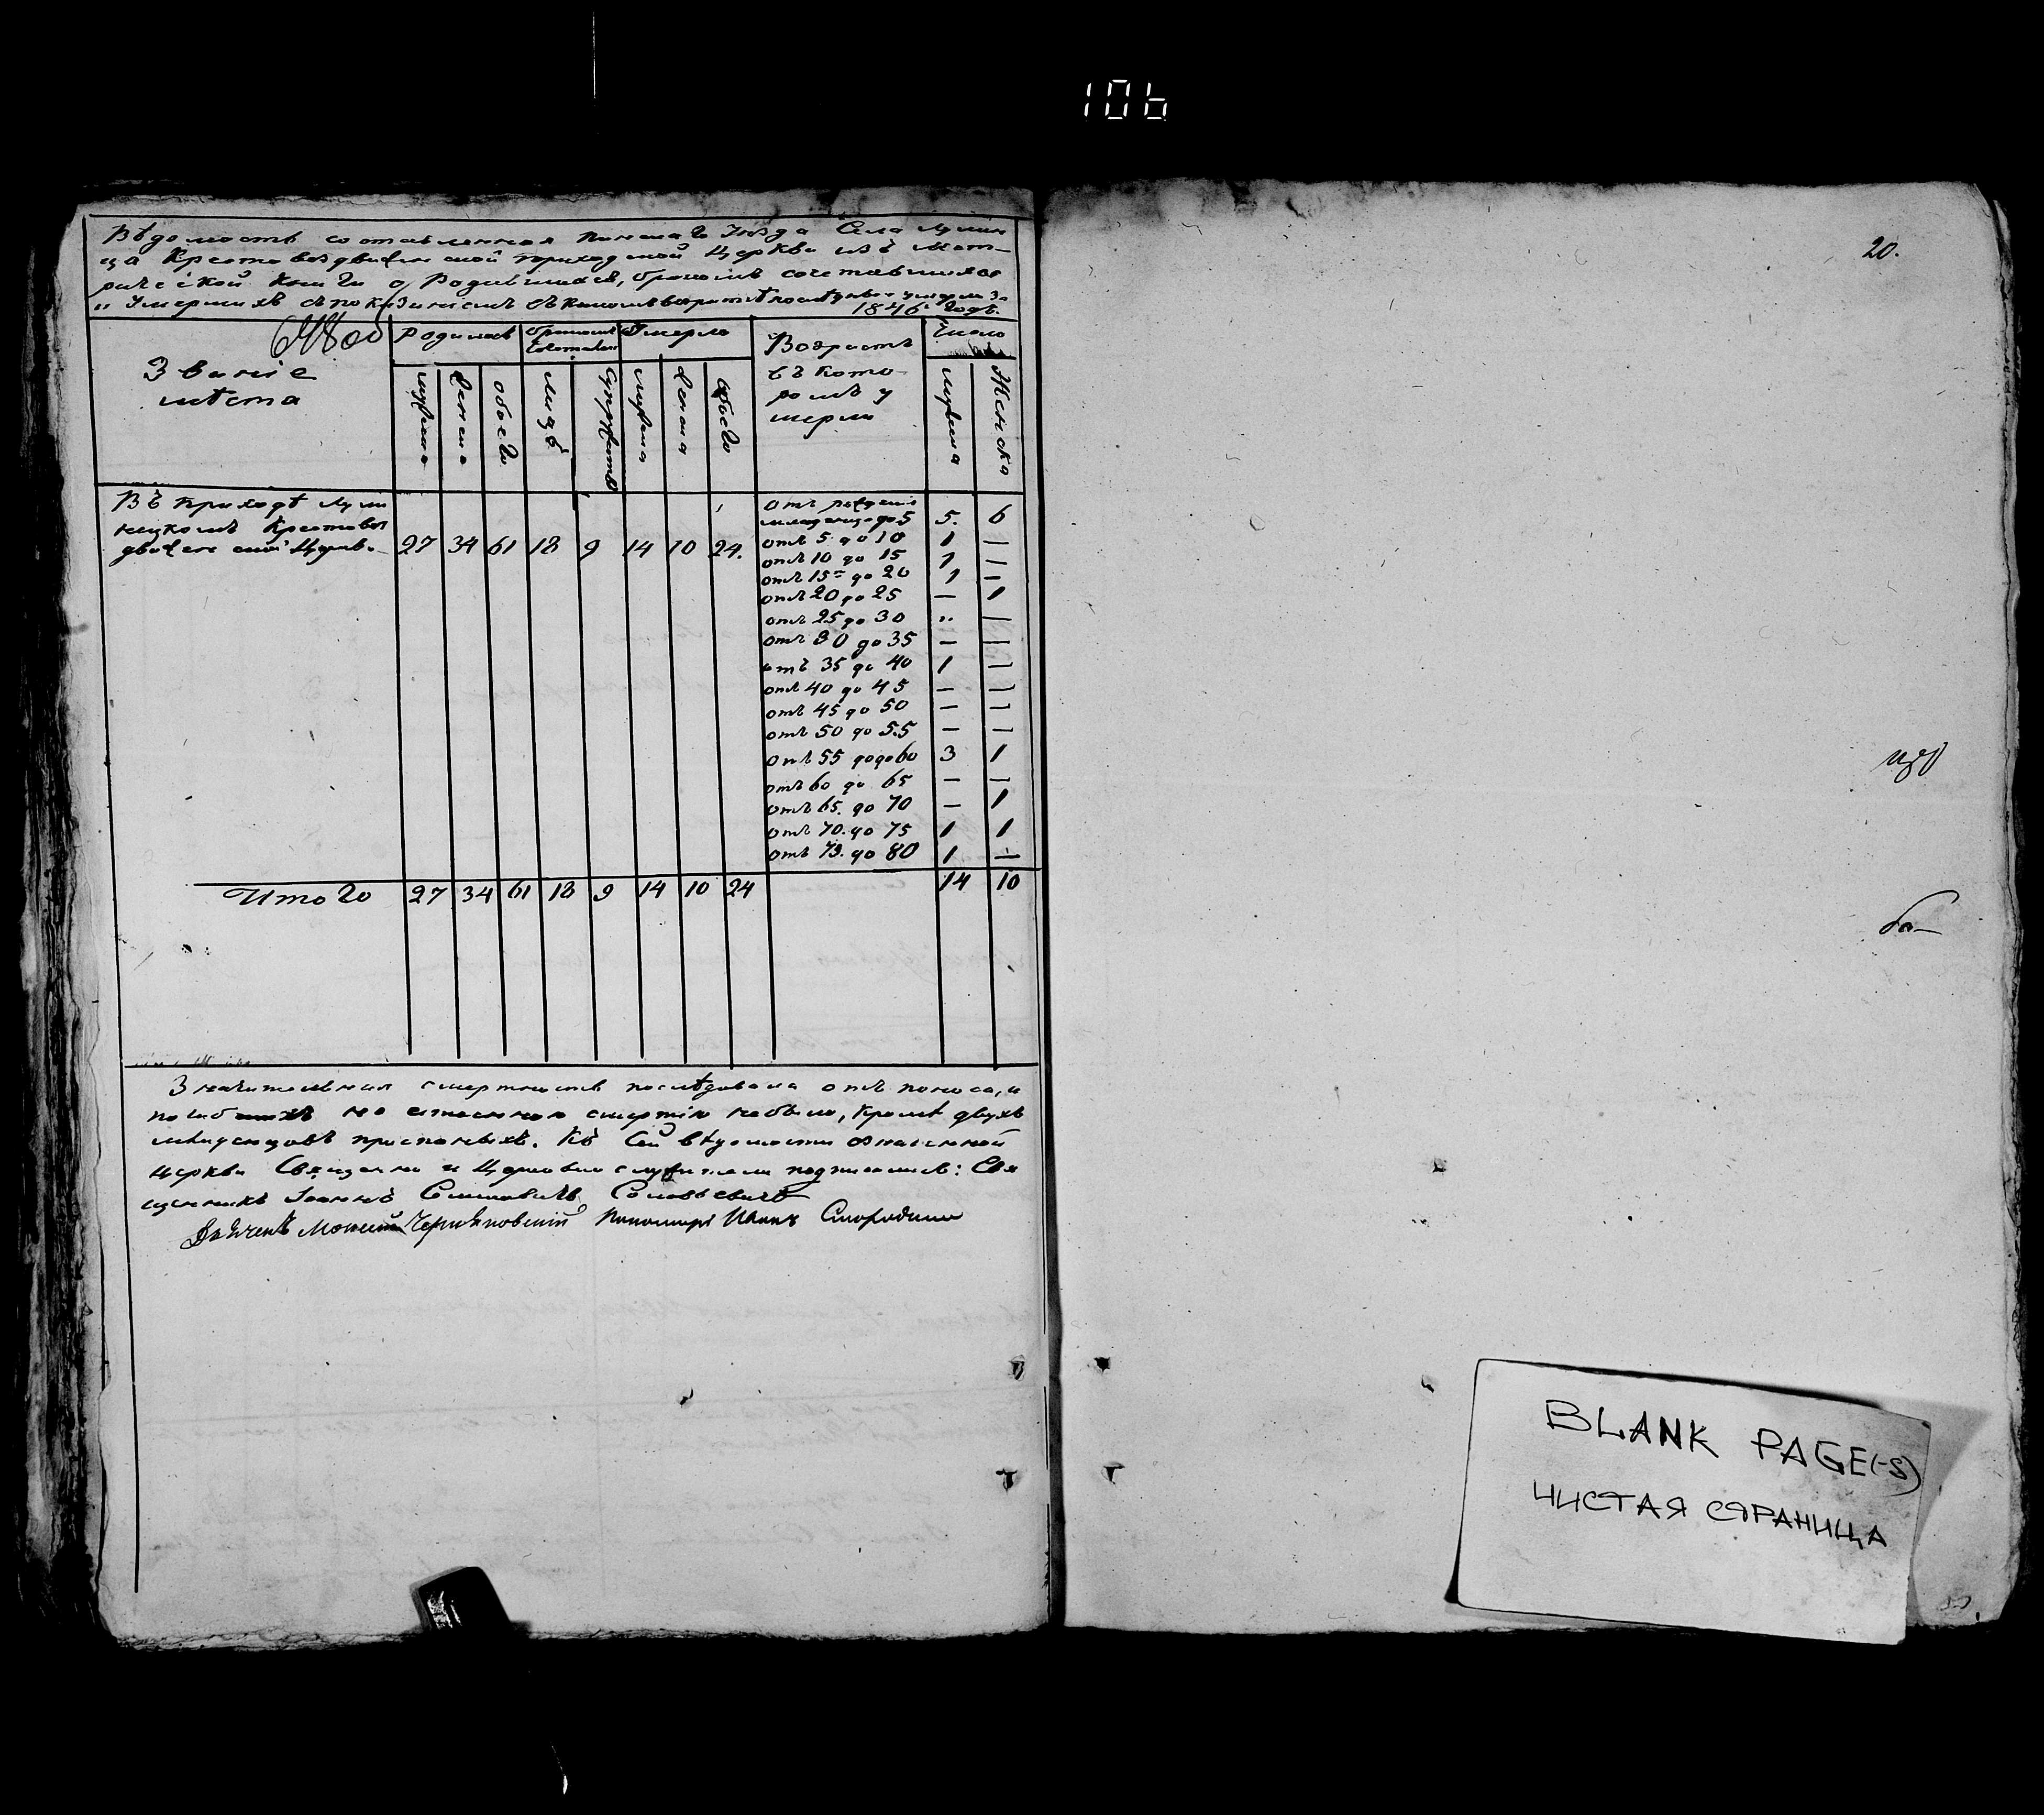 106
Вѣдомость составленная Пинскаго Уѣзда Села Лунин
ца Крестовоздвиженской приходской Церкви изъ Мет-
рической Книги о Родившихся, бракомъ сочетавшихся
и Умершихъ съ показаніемъ въ какомъ возрастѣ за
1846. Годъ.
Званіе
мѣста
Родилось
Бракомъ
Сочеталось
Умерло
Возрастъ
въ кото
ромъ у
мерли
Число
мужеска
женска
обоего
Лицъ
Супружествъ
мужеска
женска
обоего
мужеска
Женска
Въ приходѣ Луни
нецкомъ Крестовоз
движенской Церкви
27 34 61 18 9 14 10 24.
Отъ рожденія
младенца до 5 5. 6
отъ 5 до 10 1 —
отъ 10 до 15 1 —
отъ 15 до 20 1 —
отъ 20 до 25 — 1
отъ 25 до 30 „ —
отъ 30 до 35 — —
отъ 35 до 40 1 —
отъ 40 до 45 — —
отъ 45 до 50 — —
отъ 50 до 55 — —
отъ 55 до до 60 3 1
отъ 60 до 65 — —
отъ 65. до 70 — 1
отъ 70. до 75 1 1
отъ 75. до 80 1 —
Итого 27 34 61 18 9 14 10 24 14 10
Значительная смертность послѣдовала отъ поноса, и
погибшихъ не естественною смертію небыло, кромѣ двухъ
младенцовъ приспанныхъ. Къ сей вѣдомости означенной
Церкви Священно и Церковно служители подписались: Свя
щенникъ Іоаннъ Соловьевичъ
Дьячекъ Моисей Черняковскій Пономарь Иванъ Смородинъ
20.
BLANK PAGE(-S)
ЧИСТАЯ СТРАНИЦА